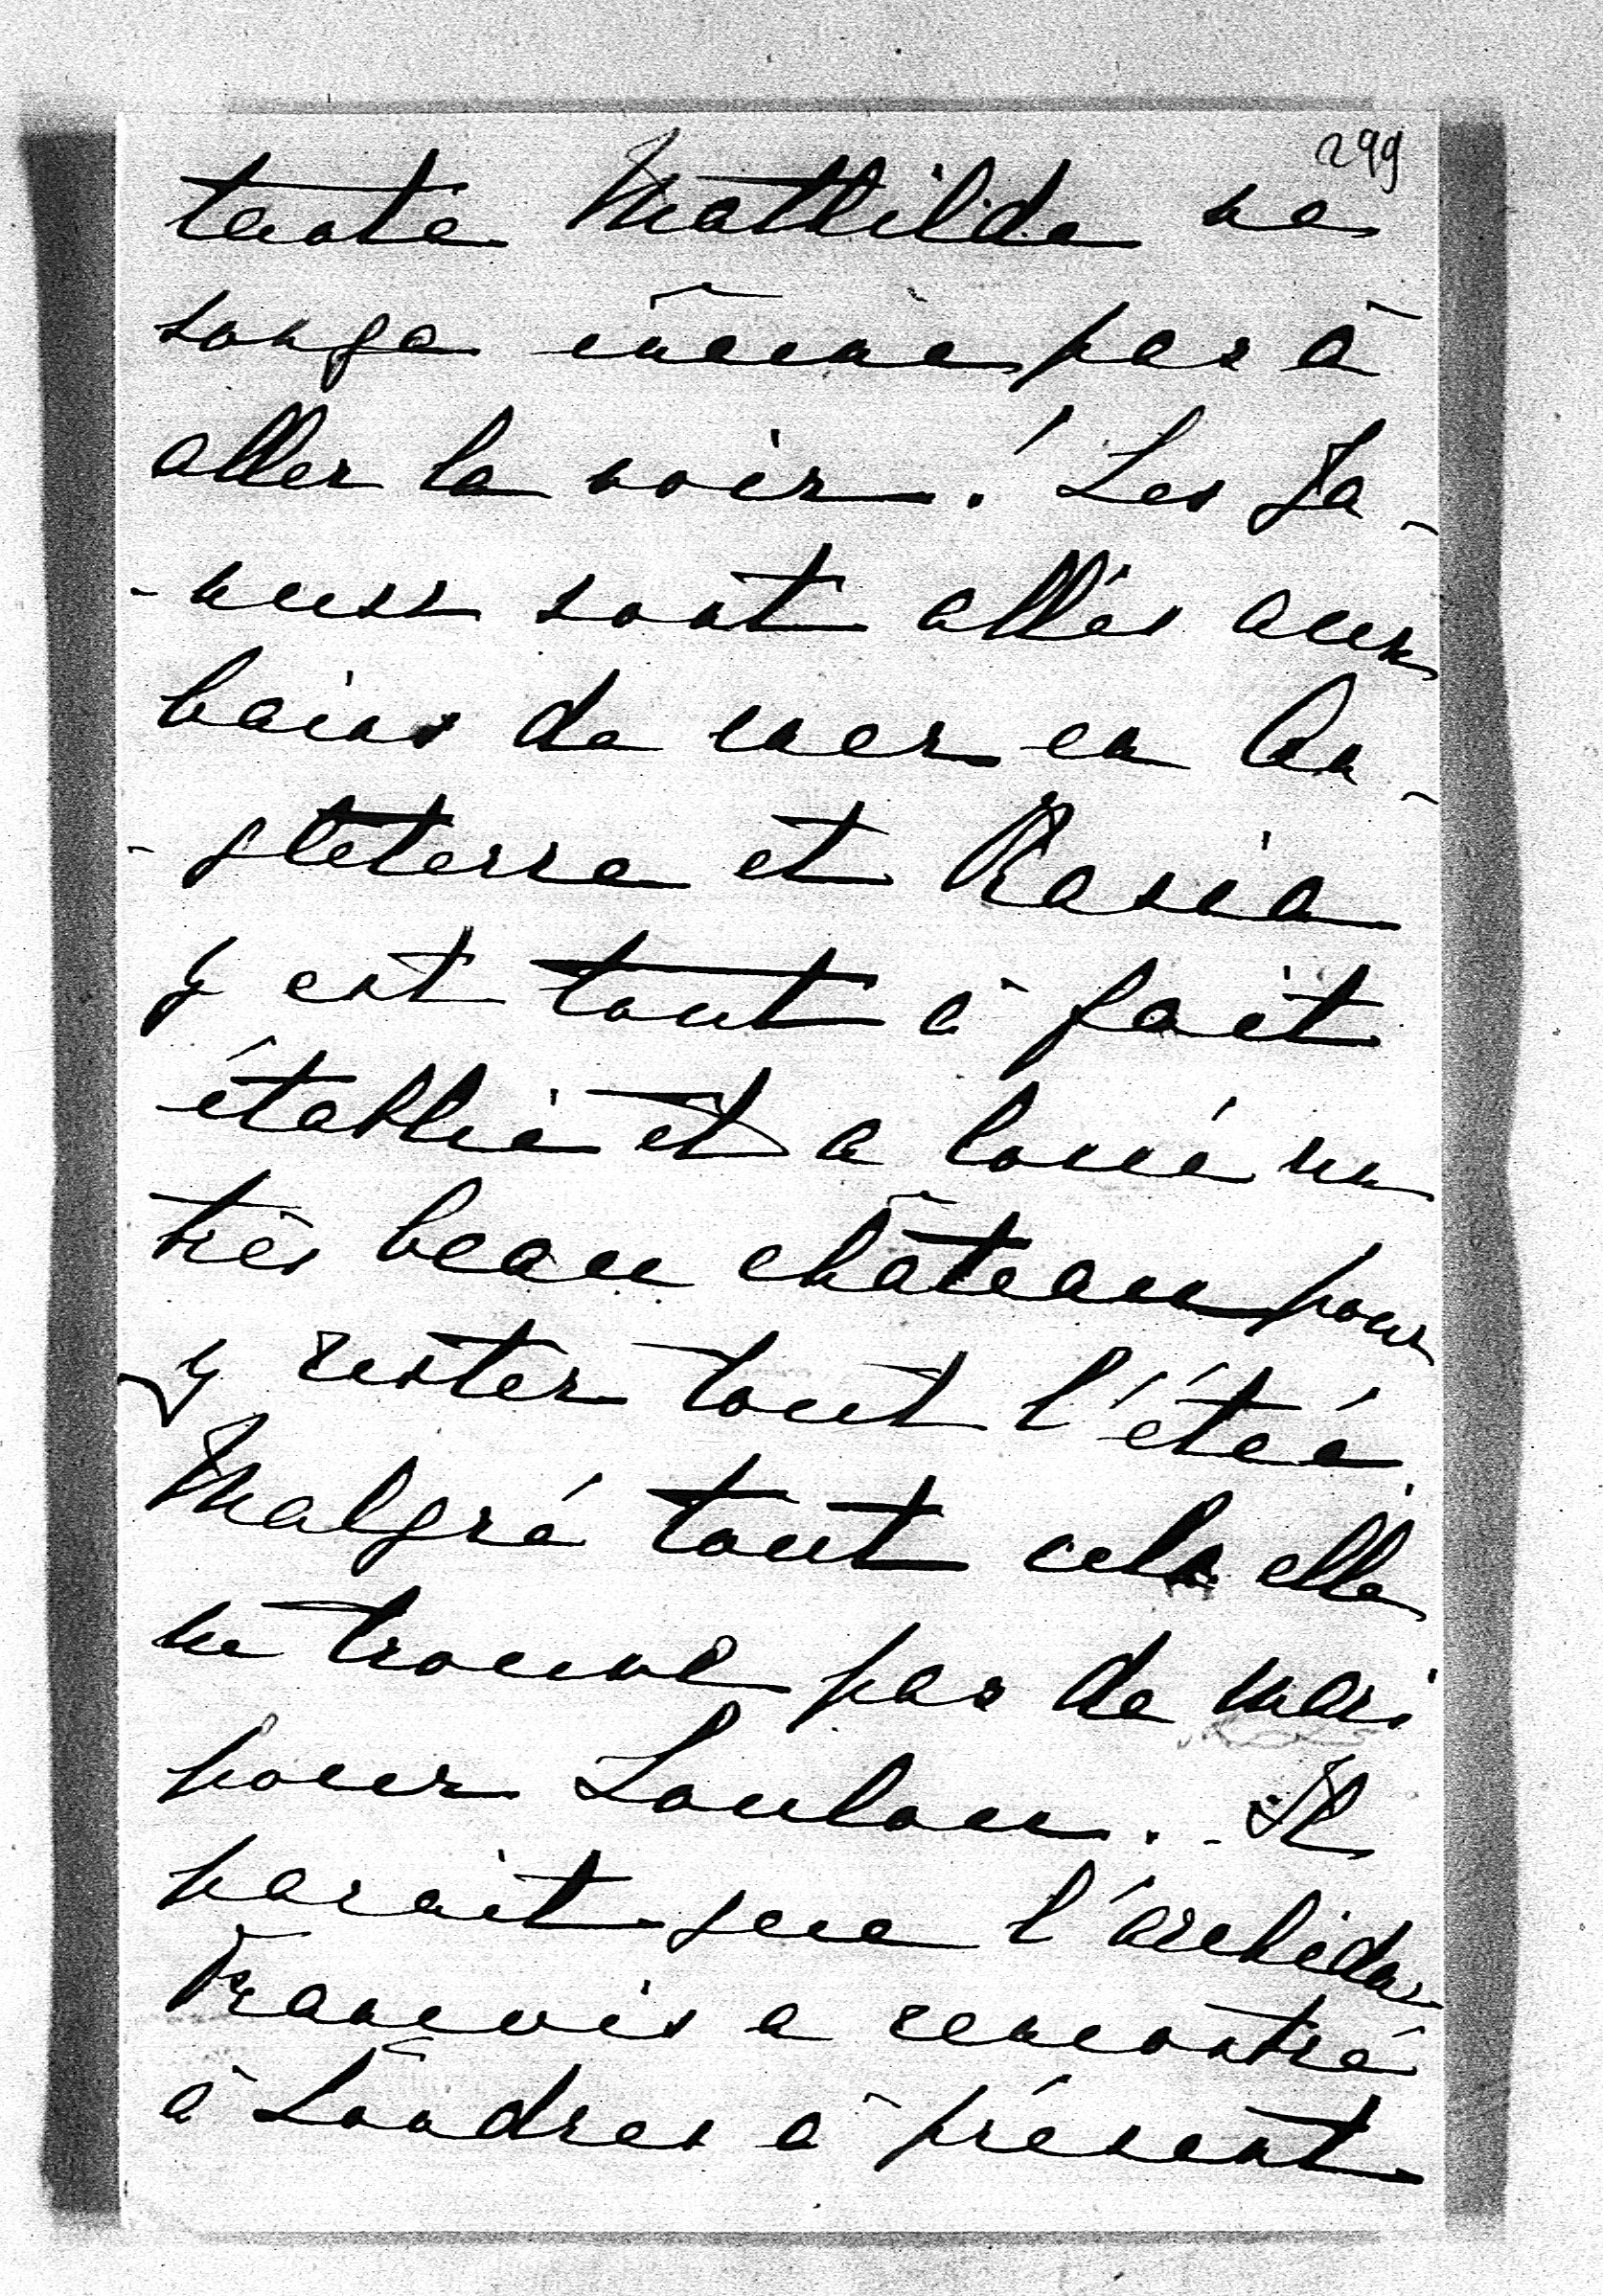 299
tante Mathilde ne
songe même pas à
aller la voir! Les Ja-
-nuss sont allés aux
bains de mer en An-
-gleterre et Rasia
y est tout à fait
établie et a loué un
très beau château pour
y rester tout l'été.
Malgré tout cela elle
ne trouve pas de mari
pour Loulou. - Il
parait que l'archiduc
François a rencontré
à Londres à présent